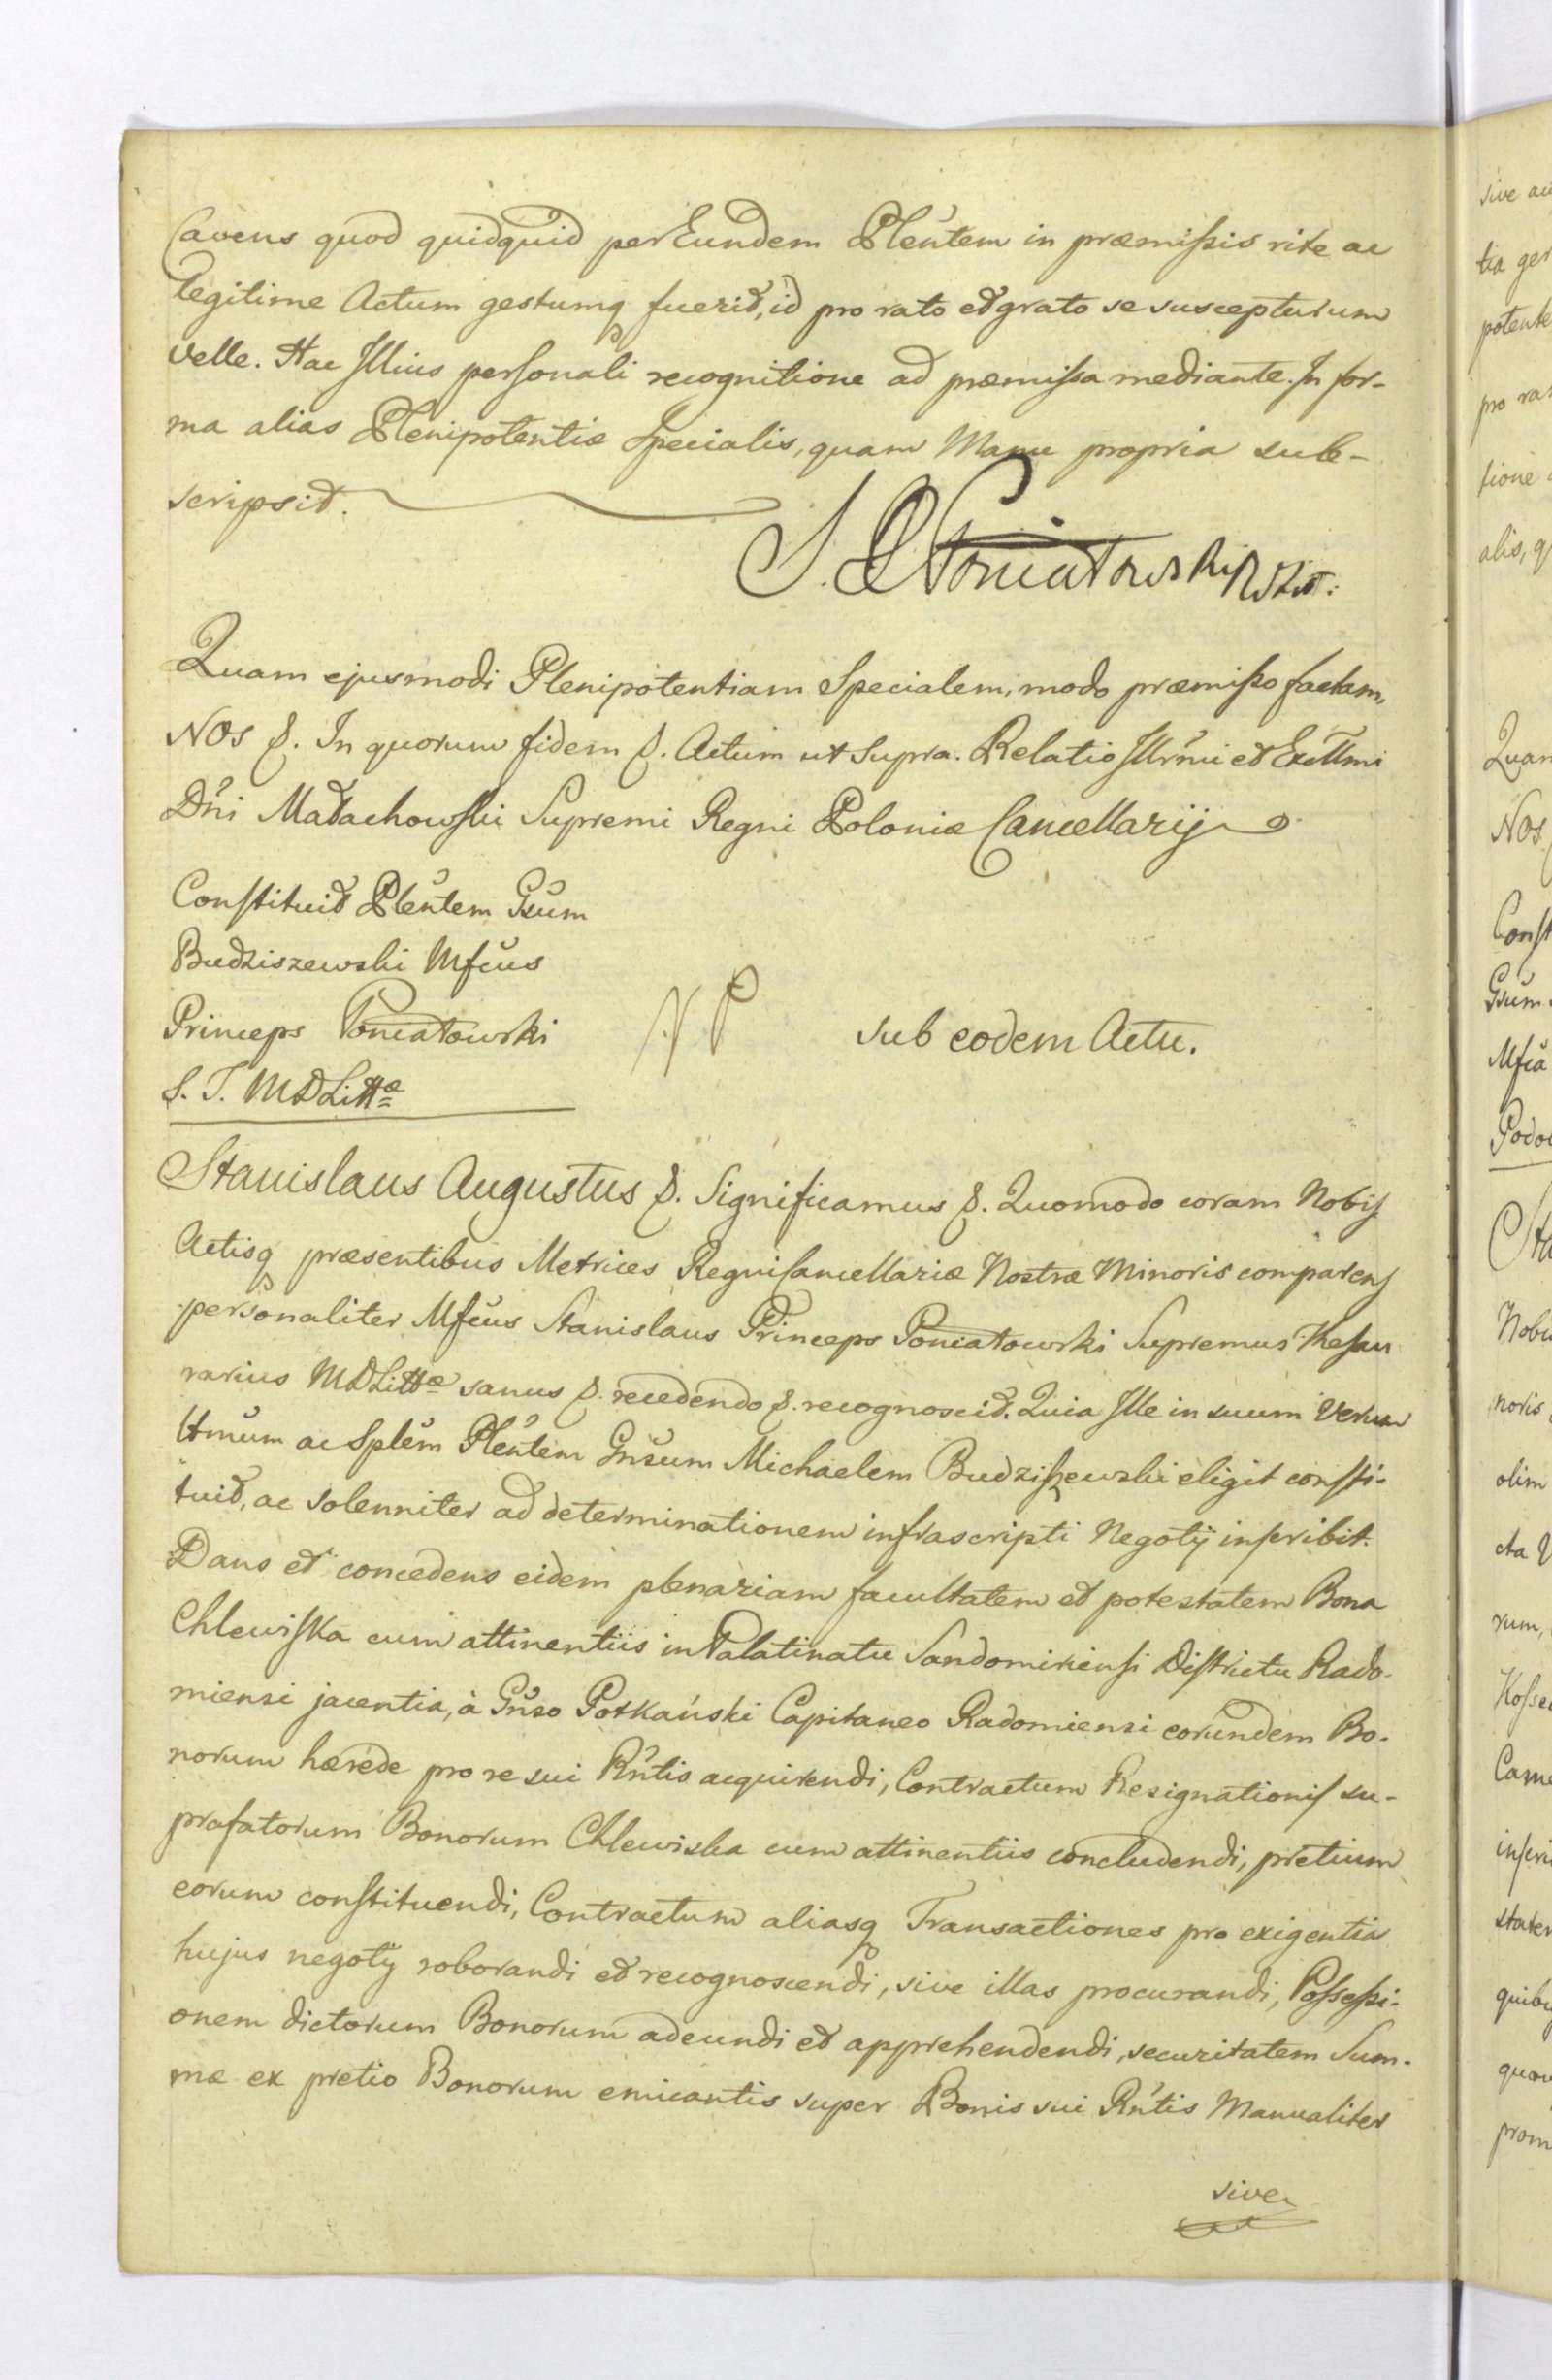 Cavens quod quidquid per Eundem Plentem in præmissis rite ac
legitime Actum gestumq fuerit, id pro rato et grato se suscepturum
velle. Hac Illius personali recognitione ad præmissa mediante. In for-
ma alias Plenipotentiæ Specialis, quam Manu propria sub-
scripsit.
S. P. Poniatowski
Quam ejusmodi Plenipotentiam Specialem, modo præmisso factam,
NOS &. In quorum fidem &. Actum ut supra. Relatio Illrmi et Excllmi
Dni Małachowski Supremi Regni Poloniæ Cancellarij
Constituit Plentem Gsum
Budziszewski Mfcus
Princeps Poniatowski
S. T. MDLittæ
sub eodem Actu.
Stanislaus Augustus &. Significamus &. Quomodo coram Nobis
Actisq præsentibus Metrices Regni Cancellariæ Nostræ Minoris comparens
personaliter Mfcus Stanislaus Princeps Poniatowski Supremus Thesau
rarius MDLittæ sanus &. recedendo &. recognoscit. Quia Ille in suum verum
Ltmum ac Splem Plentem Gnsum Michaelem Budziszewski eligit consti-
tuit, ac solenniter ad determinationem infrascripti Negotij inscribit.
Dans et concedens eidem plenariam facultatem et potestatem Bona
Chlewiska cum attinentiis in Palatinatu Sandomiriensi Districtu Rado-
miensi jacentia, à Gnso Potkański Capitaneo Radomiensi eorundem Bo-
norum hærede pro re sui Rntis acquirendi, Contractum Resignationis su-
prafatorum Bonorum Chlewiska cum attinentiis concludendi, pretium
eorum constituendi, Contractum aliasq Transactiones pro exigentia
hujus negotij roborandi et recognoscendi, sive illas procurandi, Possessi-
onem dictorum Bonorum adeundi et apprehendendi, securitatem Sum-
mæ ex pretio Bonorum emicantis super Bonis sui Rntis Manualiter
sive
sive
tia
pro
alis,
Quam
Nos
Const
Gsum
Mfca
Sta
Nobis
noris
olim
cta
rum,
quibus